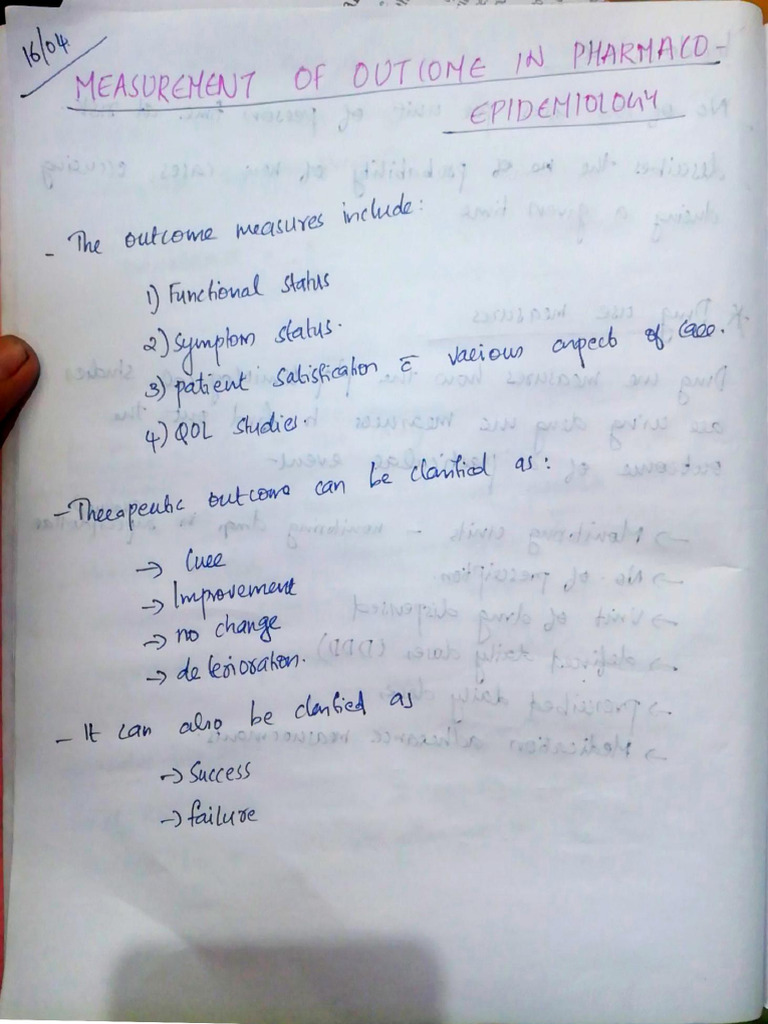 16/04
MEASUREMENT OF OUTCOME IN PHARMACO-
EPIDEMIOLOGY
- The outcome measures include:
1) Functional status
2) Symptom status.
3) patient satisfication c̄ various aspect of care.
4) QOL studies.
- Therapeutic outcome can be classified as:
→ Cure
→ Improvement
→ no change
→ deterioration.
- It can also be classified as
→ Success
→ failure